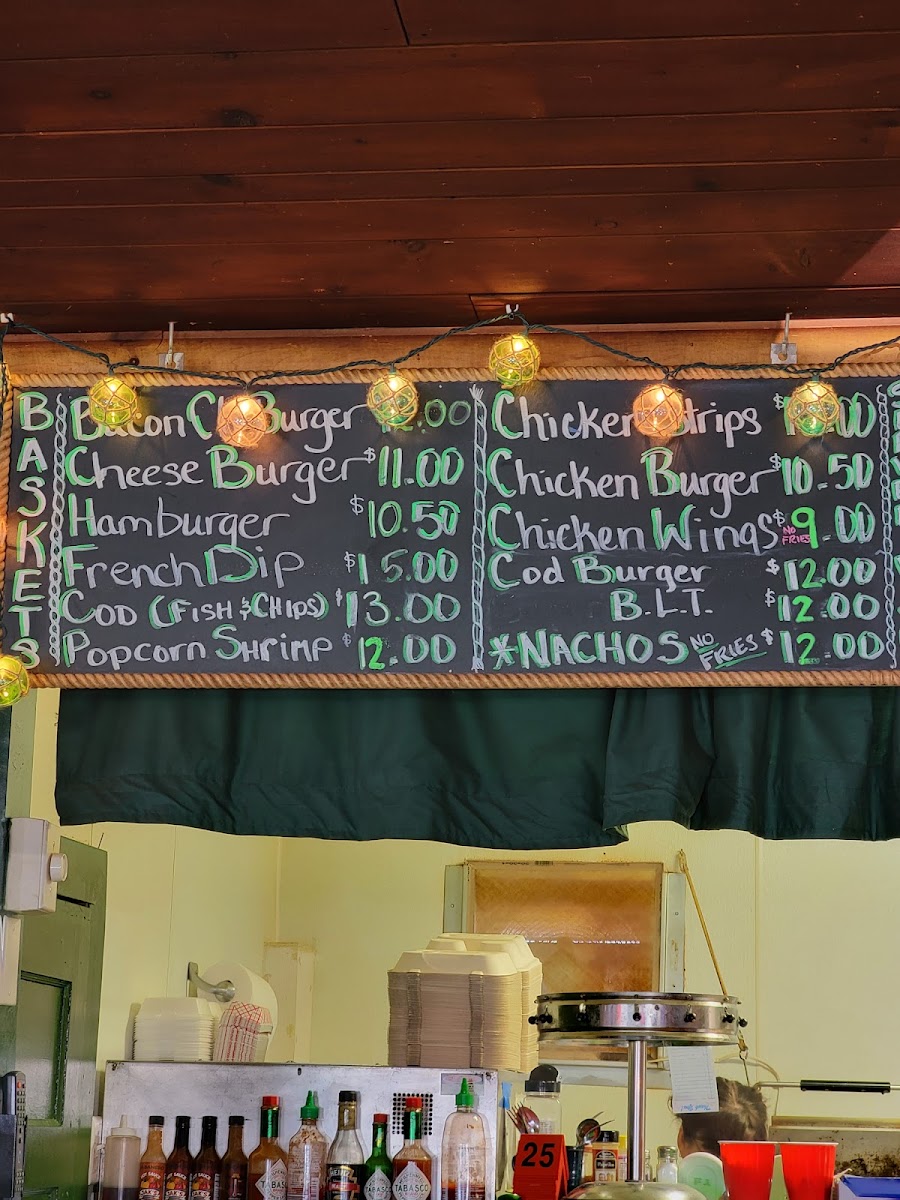 BASKETS
Bacon Burger
Cheese Burger $11.00
Hamburger $10.50
French Dip $15.00
Cod (Fish & Chips) $13.00
Popcorn Shrimp $12.00
Chicken Strips
Chicken Burger $10.50
Chicken Wings NO FRIES $9.00
Cod Burger $12.00
B.L.T. $12.00
*NACHOS NO FRIES $12.00
TABASCO
TABASCO
TABASCO
25